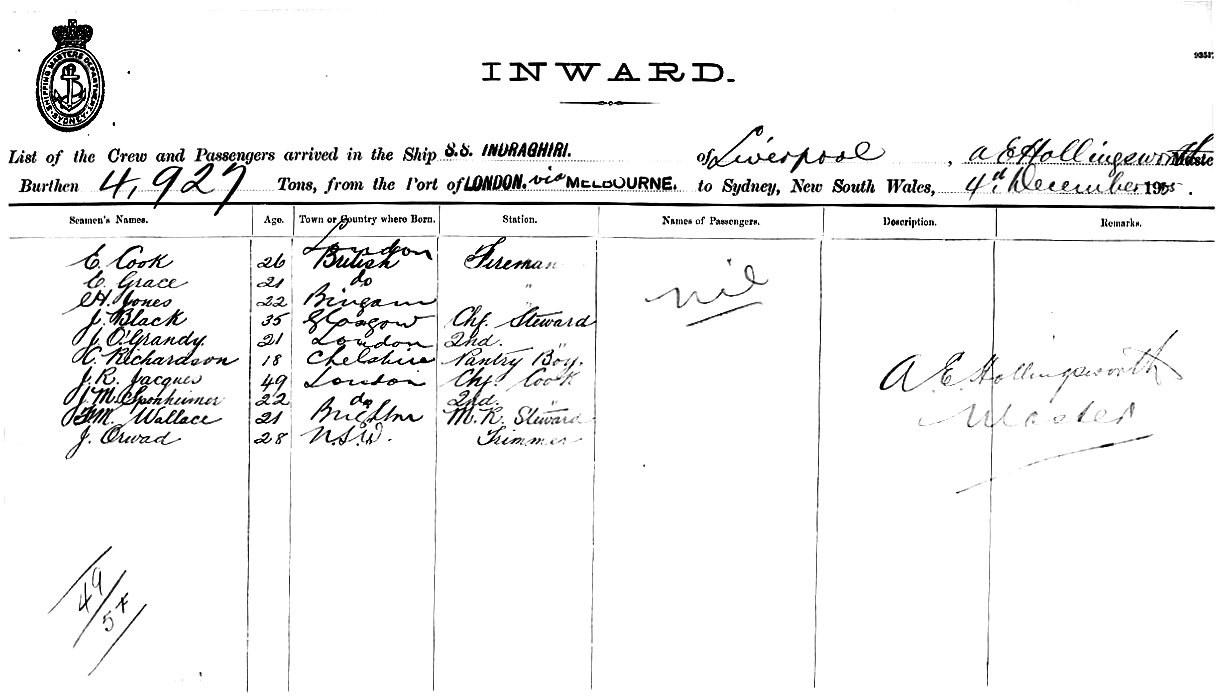 SHIPPING MASTERS DEPARTMENT SYDNEY
935F
INWARD.
List of the Crew and Passengers arrived in the Ship S.S. INDRAGHIRI. of Liverpool, A E Hollingsworth
Burthen 4,927 Tons, from the Port of LONDON. via MELBOURNE. to Sydney, New South Wales, 4th December 19
Seamen's Names. Age. Town or Country where Born. Station. Names of Passengers. Description. Remarks.
London
E. Cook 26 British Fireman
E. Grace 21 do "
Jones 22 "
J. Black 35 Glasgow Chf. Steward
J. O'Grandy 21 London 2nd. "
C. Richardson 18 Chelshire Pantry Boy.
J. R. Jacques 49 London Chf. Cook
J. M. Sponheimer 22 do 2nd. "
Wallace 21 Brighton M. R. Steward
J. Orwad 28 N.S.W. Trimmer
nil
A. E. Hollingsworth
Master
49
54